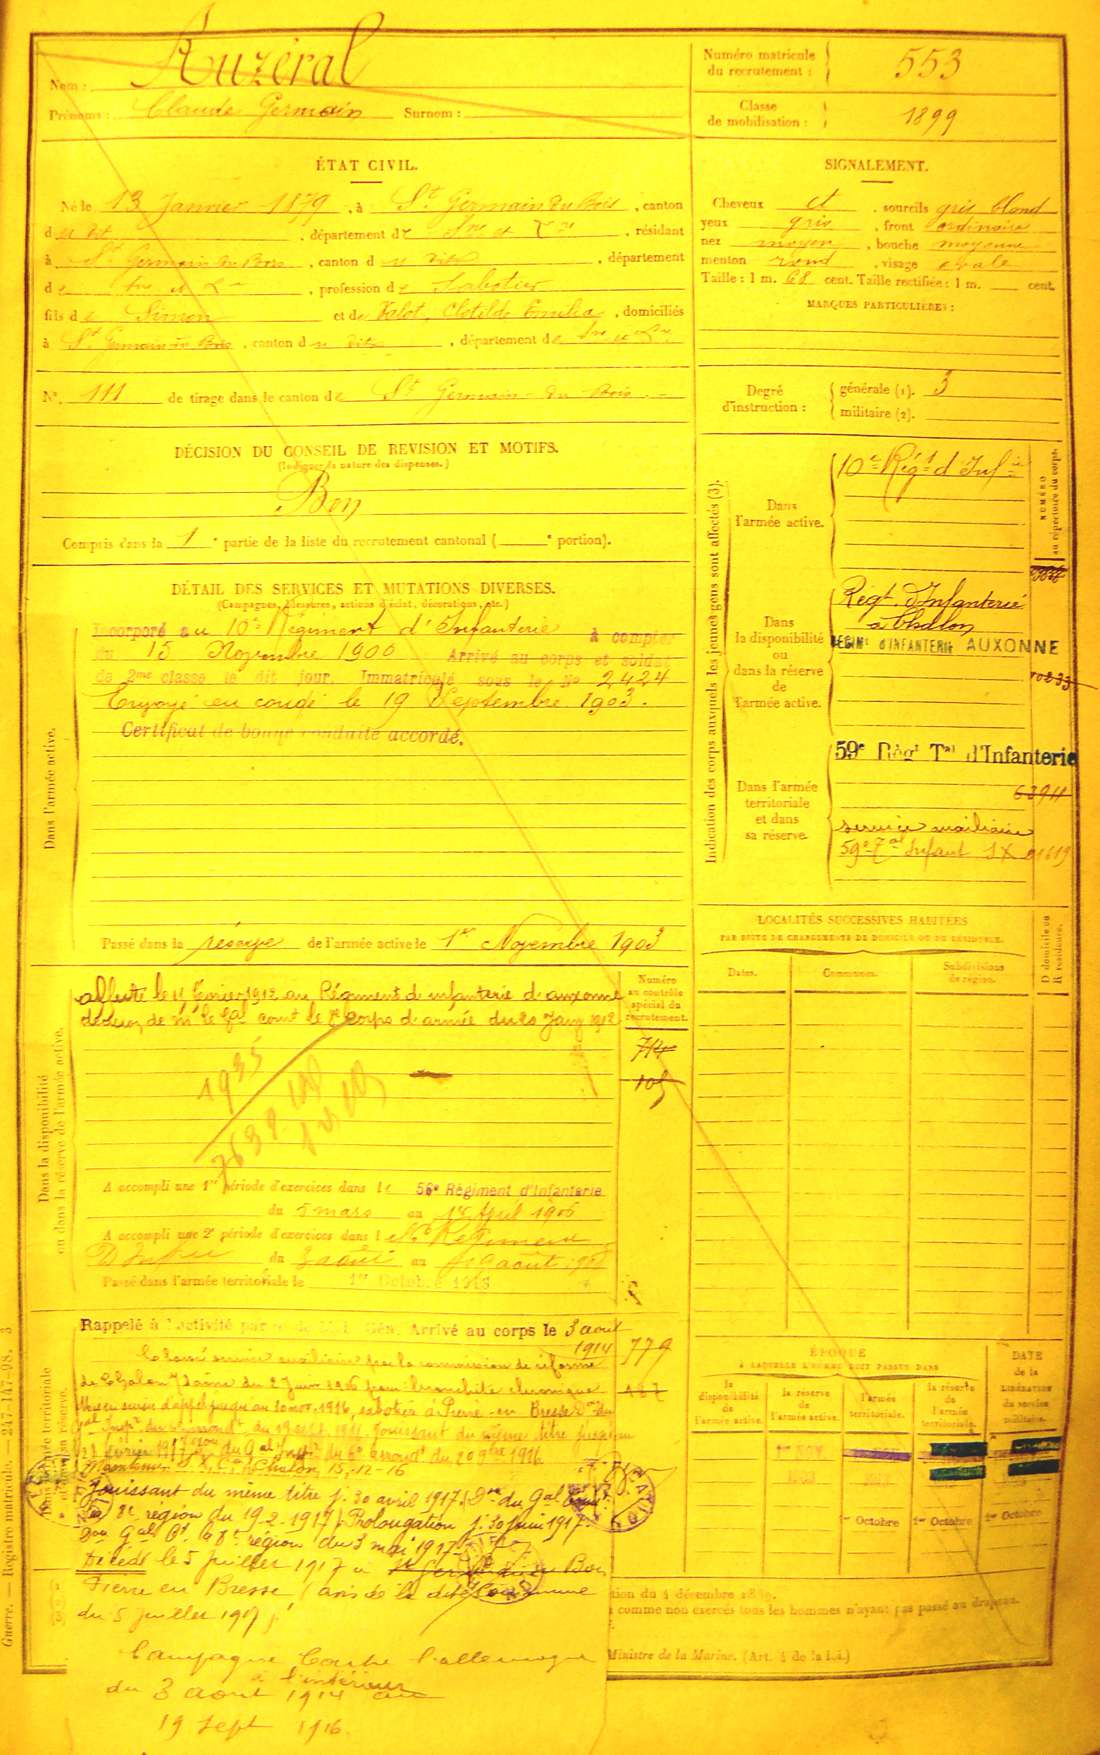 Nom :
Auzéral
Prénoms : Claude Germain Surnom :
Numéro matricule
du recrutement : 553
Classe
de mobilisation : 1899
ÉTAT CIVIL.
Né le 13 Janvier 1879, à St Germain du Bois, canton
du dit, département de Sne et Lre, résidant
à St Germain du Bois, canton du dit, département
de Sne et Lre, profession de Sabotier
fils de Simon et de Valot, Clotilde Emilia, domiciliés
à St Germain du Bois, canton du dit, département de Sne et Lre
N° 111 de tirage dans le canton de St Germain-du Bois
SIGNALEMENT.
Cheveux et, sourcils gris blond
yeux gris, front ordinaire
nez moyen, bouche moyenne
menton rond, visage ovale
Taille : 1 m. 68 cent. Taille rectifiée : 1 m. cent.
MARQUES PARTICULIÈRES :
Degré
d'instruction :
générale (1). 3
militaire (2).
DÉCISION DU CONSEIL DE REVISION ET MOTIFS.
(Indiquer la nature des dispenses.)
Bon
Compris dans la 1e partie de la liste du recrutement cantonal ( e portion).
DÉTAIL DES SERVICES ET MUTATIONS DIVERSES.
(Campagnes, blessures, actions d'éclat, décorations, etc.)
Dans l'armée active.
Incorporé au 10e Régiment d'Infanterie à compter
du 15 Novembre 1900 Arrivé au corps et soldat
de 2me classe le dit jour. Immatriculé sous le No 2424
Envoyé en congé le 19 Septembre 1903.
Certificat de bonne conduite accordé.
Passé dans la réserve de l'armée active le 1er Novembre 1903
Indication des corps auxquels les jeunes gens sont affectés (3).
NUMÉRO
au répertoire du corps.
Dans
l'armée active.
10e Régt d'Infie
Dans
la disponibilité
ou
dans la réserve
de
l'armée active.
Régt. d'Infanterie
à Chalon
REGIMt D'INFANTERIE AUXONNE
10233
Dans l'armée
territoriale
et dans
sa réserve.
59e Régt Tal d'Infanterie
6394
service auxiliaire
59e Tal Infant SX 01619
LOCALITÉS SUCCESSIVES HABITÉES
PAR SUITE DE CHANGEMENTS DE DOMICILE OU DE RÉSIDENCE.
D domicile ou
R résidence.
Dates. Communes. Subdivisions
de région.
Dans la disponibilité
ou dans la réserve de l'armée active.
Numéro
au contrôle
spécial du
recrutement.
affecté le 11 février 1912 au Régiment d'infanterie d'auxonne
décision de Mr le Gal comt le 8e Corps d'armée du 20 Janv 1912
714
105
1935
7639
A accompli une 1re période d'exercices dans le 56e Régiment d'Infanterie
du 5 mars au 1er Avril 1906
A accompli une 2e période d'exercices dans l
du 3 août au août 1908
Passé dans l'armée territoriale le 1er Octobre 1913
Rappelé à l'activité Arrivé au corps le 3 août
1914
779
187
Classé service auxiliaire par la commission de réforme
de Chalon s/Saône du 2 Juin 1916 pour bronchite chronique
Mis en sursis d'appel jusqu'au 10 nov. 1916, sabotier à Pierre-en Bresse Don du
Gal Inspr du 6e arrondt du 19 sept 1916. Jouissant du même titre jusqu'au
février 1917 Don du Gal Inspr du 6e arrondt du 20 9bre 1916
Maintenu S.X. C.R. Chalon, 15-12-16
Jouissant du même titre j. 30 avril 1917. Don du Gal Comt
8e région du 19-2-1917. Prolongation j. 30 juin 1917.
Don Gal Ct 8e région du 3 mai 1917.
Décédé le 5 Juillet 1917 à St Germain du Bois
Pierre en Bresse (avis de la dite Commune
du 5 Juillet 1917)
Campagne Contre l'allemagne
à l'intérieur
du 3 août 1914 au
19 Sept 1916.
ÉPOQUE
À LAQUELLE L'HOMME DOIT PASSER DANS
DATE
de la
LIBÉRATION
du service
militaire.
la
disponibilité
de
l'armée active.
la réserve
de
l'armée active.
l'armée
territoriale.
la réserve
de
l'armée
territoriale.
1er NOV.
1903
1er Octobre 1er Octobre 1er Octobre
du 4 décembre
comme non exercés tous les hommes n'ayant pas passé au drapeau.
Ministre de la Marine. (Art. 4 de la loi.)
Guerre. — Registro matricule. — 247-147-98. 3